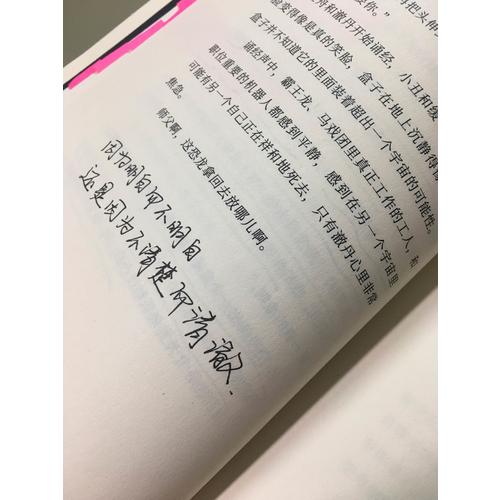 丹把头伸
你。”
舟和澈丹开始诵经，小丑和
变得像是真的笑脸，盒子在地上沉静得
盒子并不知道它的里面装着超出一个宇宙的可能性。
诵经声中，霸王龙、马戏团里真正工作的工人，和
职位重要的机器人都感到平静，感到在另一个宇宙里
可能有另一个自己正在祥和地死去，只有澈丹心里非常
焦急。
师父啊，这恐龙拿回去放哪儿啊。
因为明白而不明白
还是因为不清楚而清澈.